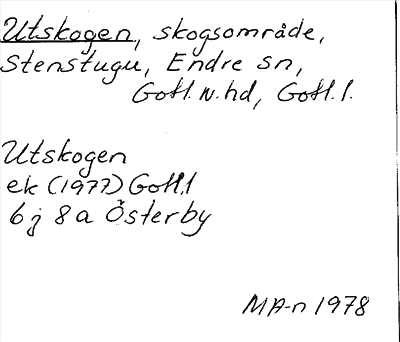 Utskogen, skogsområde,
Stenstugu, Endre sn,
Gotl. N. hd, Gotl. l.
Utskogen
ek (1977) Gotl.l
6 j 8 a Österby
MA-n 1978